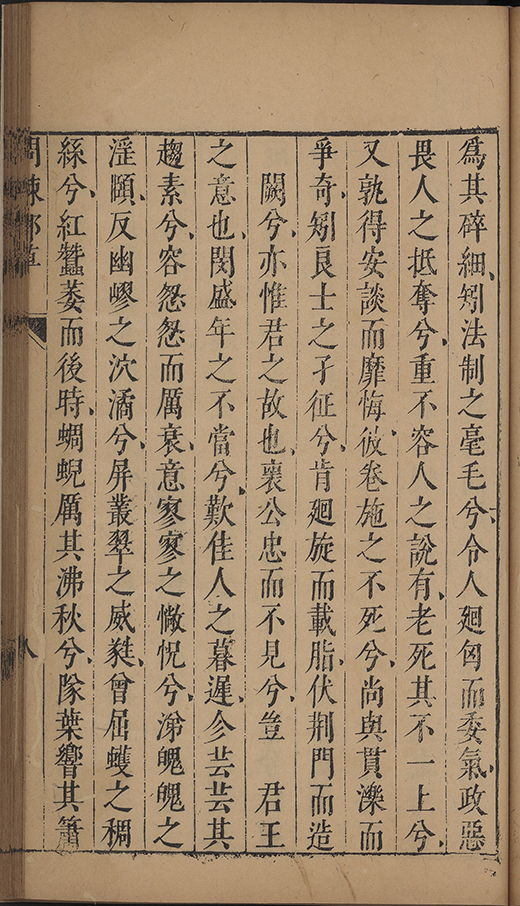 爲其碎細矧法制之毫毛兮令人廻匈而委氣政惡
畏人之抵奪兮重不容人之說有老死其不一上兮
又孰得安談而靡悔彼卷施之不死兮尚與貫濼而
爭奇矧良士之孑征兮肯廻旋而載脂伏荆門而造
闕兮亦惟君之故也襄公忠而不見兮豈 君王
之意也閔盛年之不當兮歎佳人之暮遲㒱芸芸其
趨素兮容怱怱而厲衰意寥寥之惝怳兮涕䰟䰟之
淫頤反幽嵺之泬潏兮屏叢翠之威㽔曾屈蠖之稠
絲兮紅蠶萎而後時蜩蜺厲其沸秋兮隊葉響其簫
八